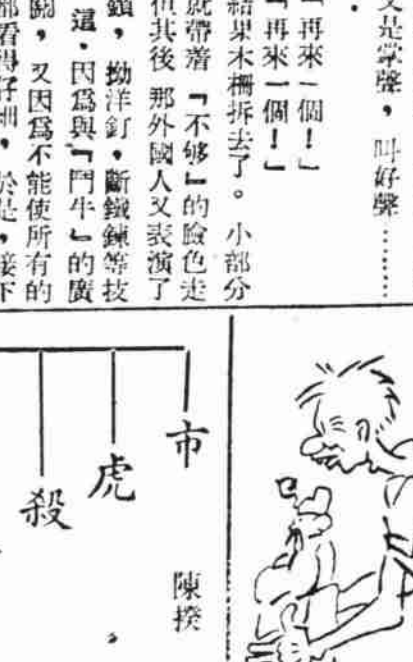 又是掌聲，叫好聲………
「再來一個！」
「再來一個！」
結果木柵拆去了。小部分
就帶着「不够」的臉色走
但其後那外國人又表演了
鎖，拗洋釘，斷鐵鍊等技
這，因爲與「鬥牛」的廣
鬪，又因爲不能使所有的
都看得仔細，於是，接下
市
虎
殺
陳揆